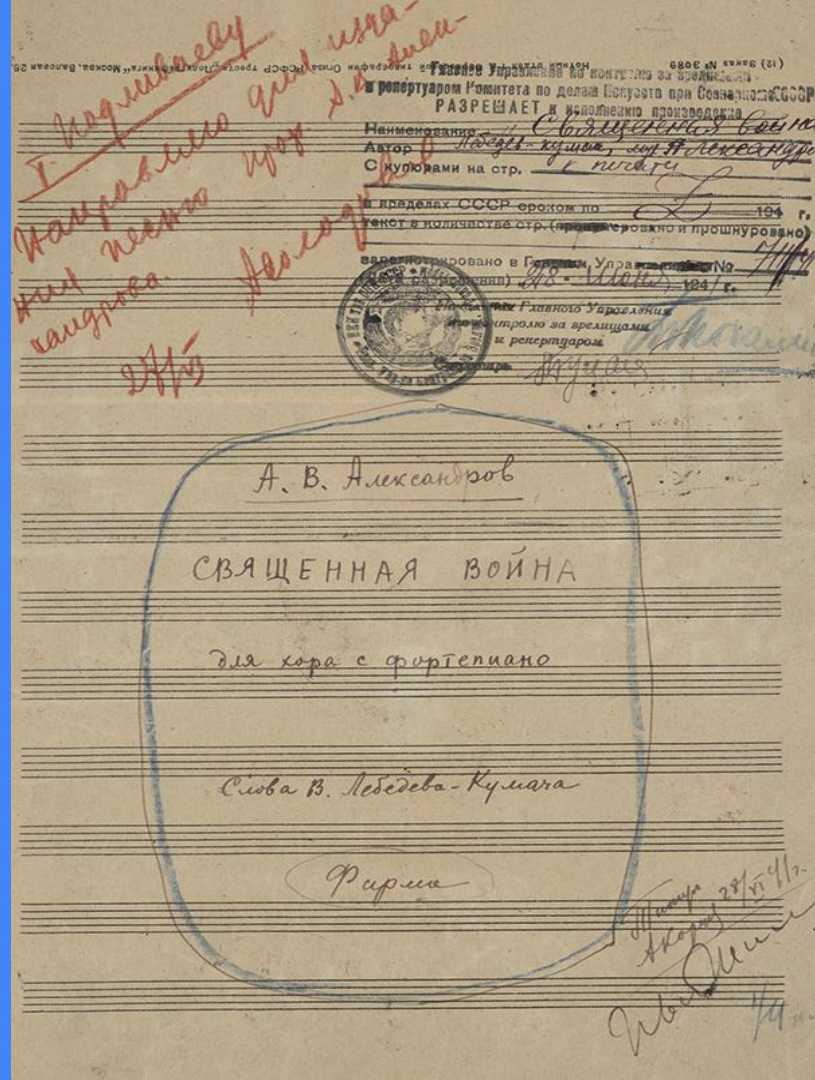 Нотный отдел 1-й Образцовой типографии Огиза РСФСР треста „Полиграфкнига“, Москва, Валовая, 28
(12) Заказ № 3089
Т. Подливаеву
Направляю для изда-
ния песню проф. А.В. Алек-
сандрова.
27/VI
Главное Управление по контролю за зрелищами
и репертуаром Комитета по делам Искусств при Совнаркоме СССР
РАЗРЕШАЕТ к исполнению произведение
Наименование „Священная война
Автор Лебедев-Кумач, муз. Александро
С купюрами на стр. к печати
в пределах СССР сроком по 194 г.
текст в количестве стр. (пронумеровано и прошнуровано)
зарегистрировано в Главном Управлении №
(дата разрешения) 28 июня 1941 г.
Начальник Главного Управления
по контролю за зрелищами
и репертуаром
Секретарь
А. В. Александров
СВЯЩЕННАЯ ВОЙНА
для хора с фортепиано
Слова В. Лебедева-Кумача
Фирма
28/VI 41 г.